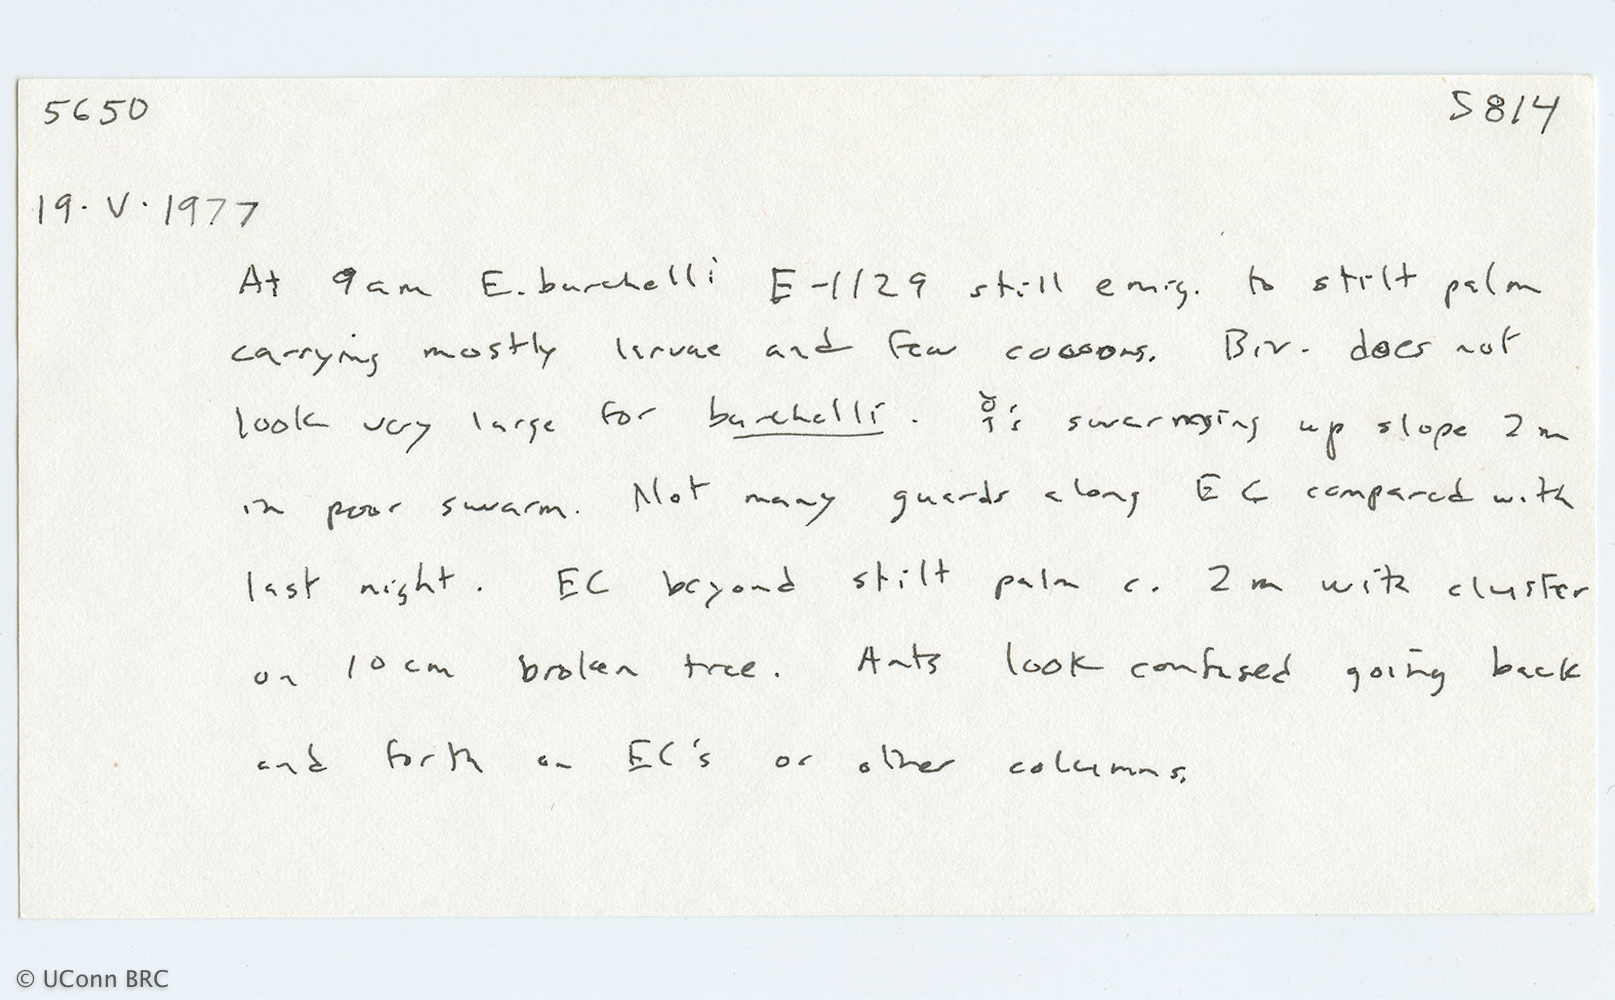 5650 5814
19. V. 1977
At 9am E. burchelli E-1129 still emig. to stilt palm
carrying mostly larvae and few cocoons. Biv. does not
look very large for burchelli. ☿'s swarming up slope 2m
in poor swarm. Not many guards along EC compared with
last night. EC beyond stilt palm c. 2m with cluster
on 10cm broken tree. Ants look confused going back
and forth on EC's or other columns.
© UConn BRC